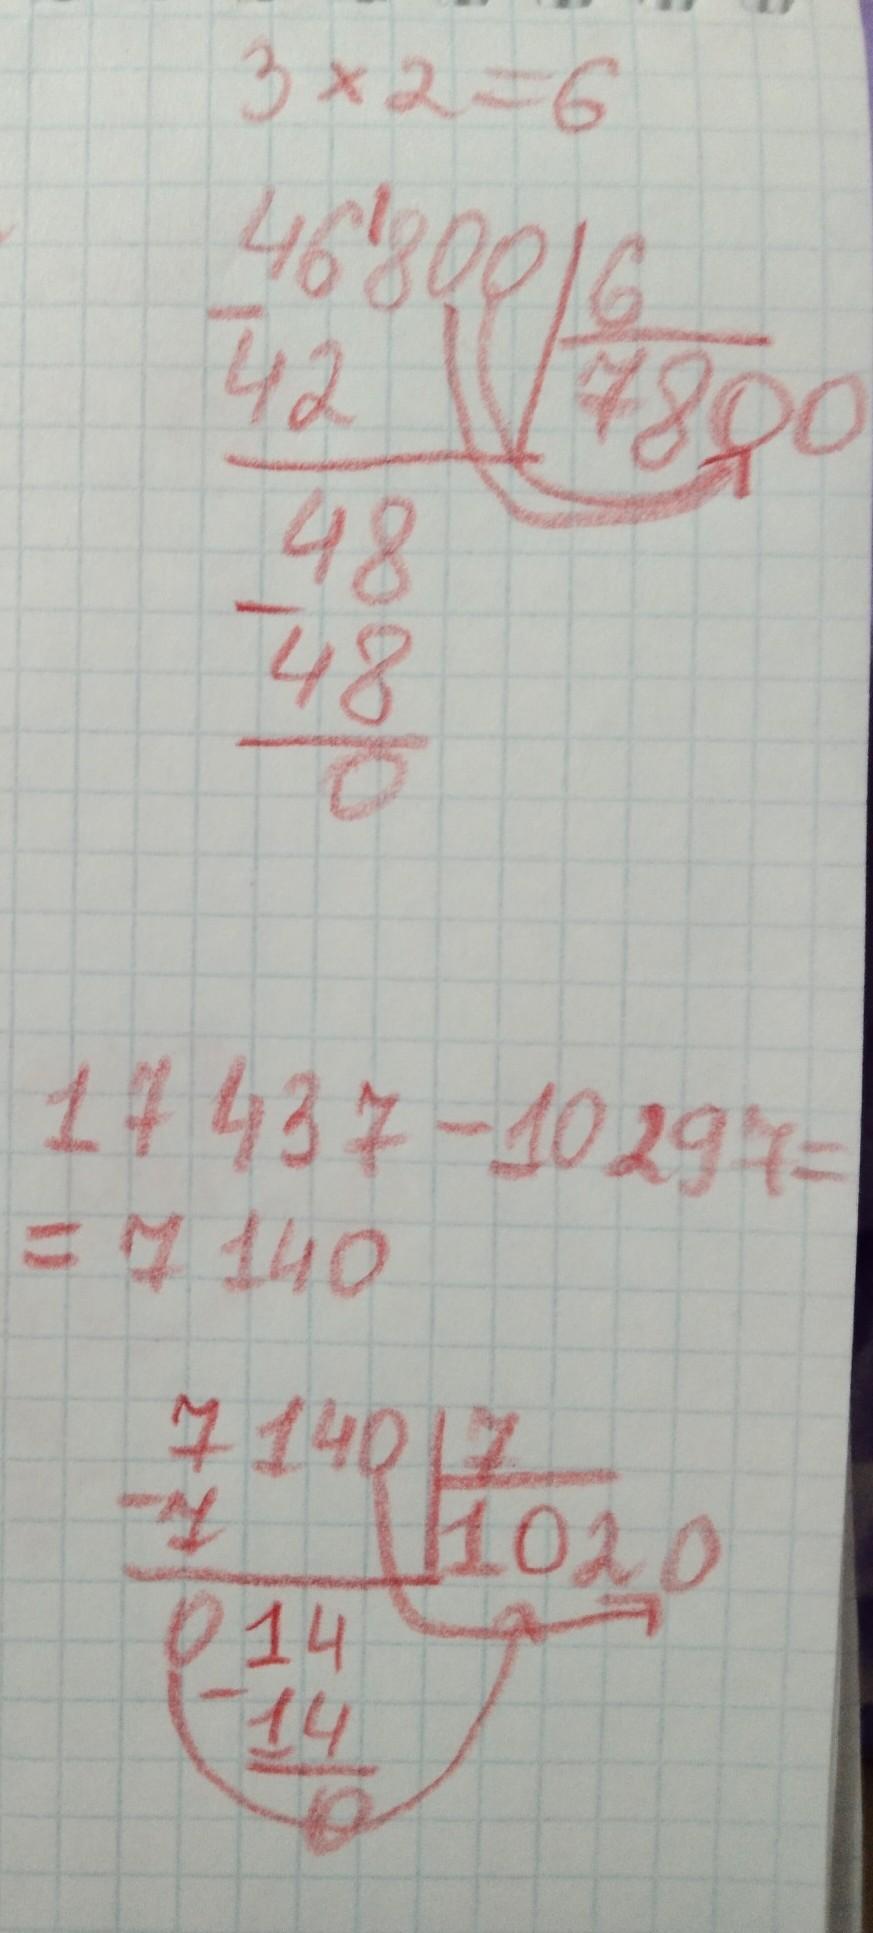 3 × 2 = 6
46'800 | 6
- 42 | 7800
48
- 48
0
17 437 - 10 297 =
= 7 140
7 140 | 7
- 7 | 1020
0 14
- 14
0